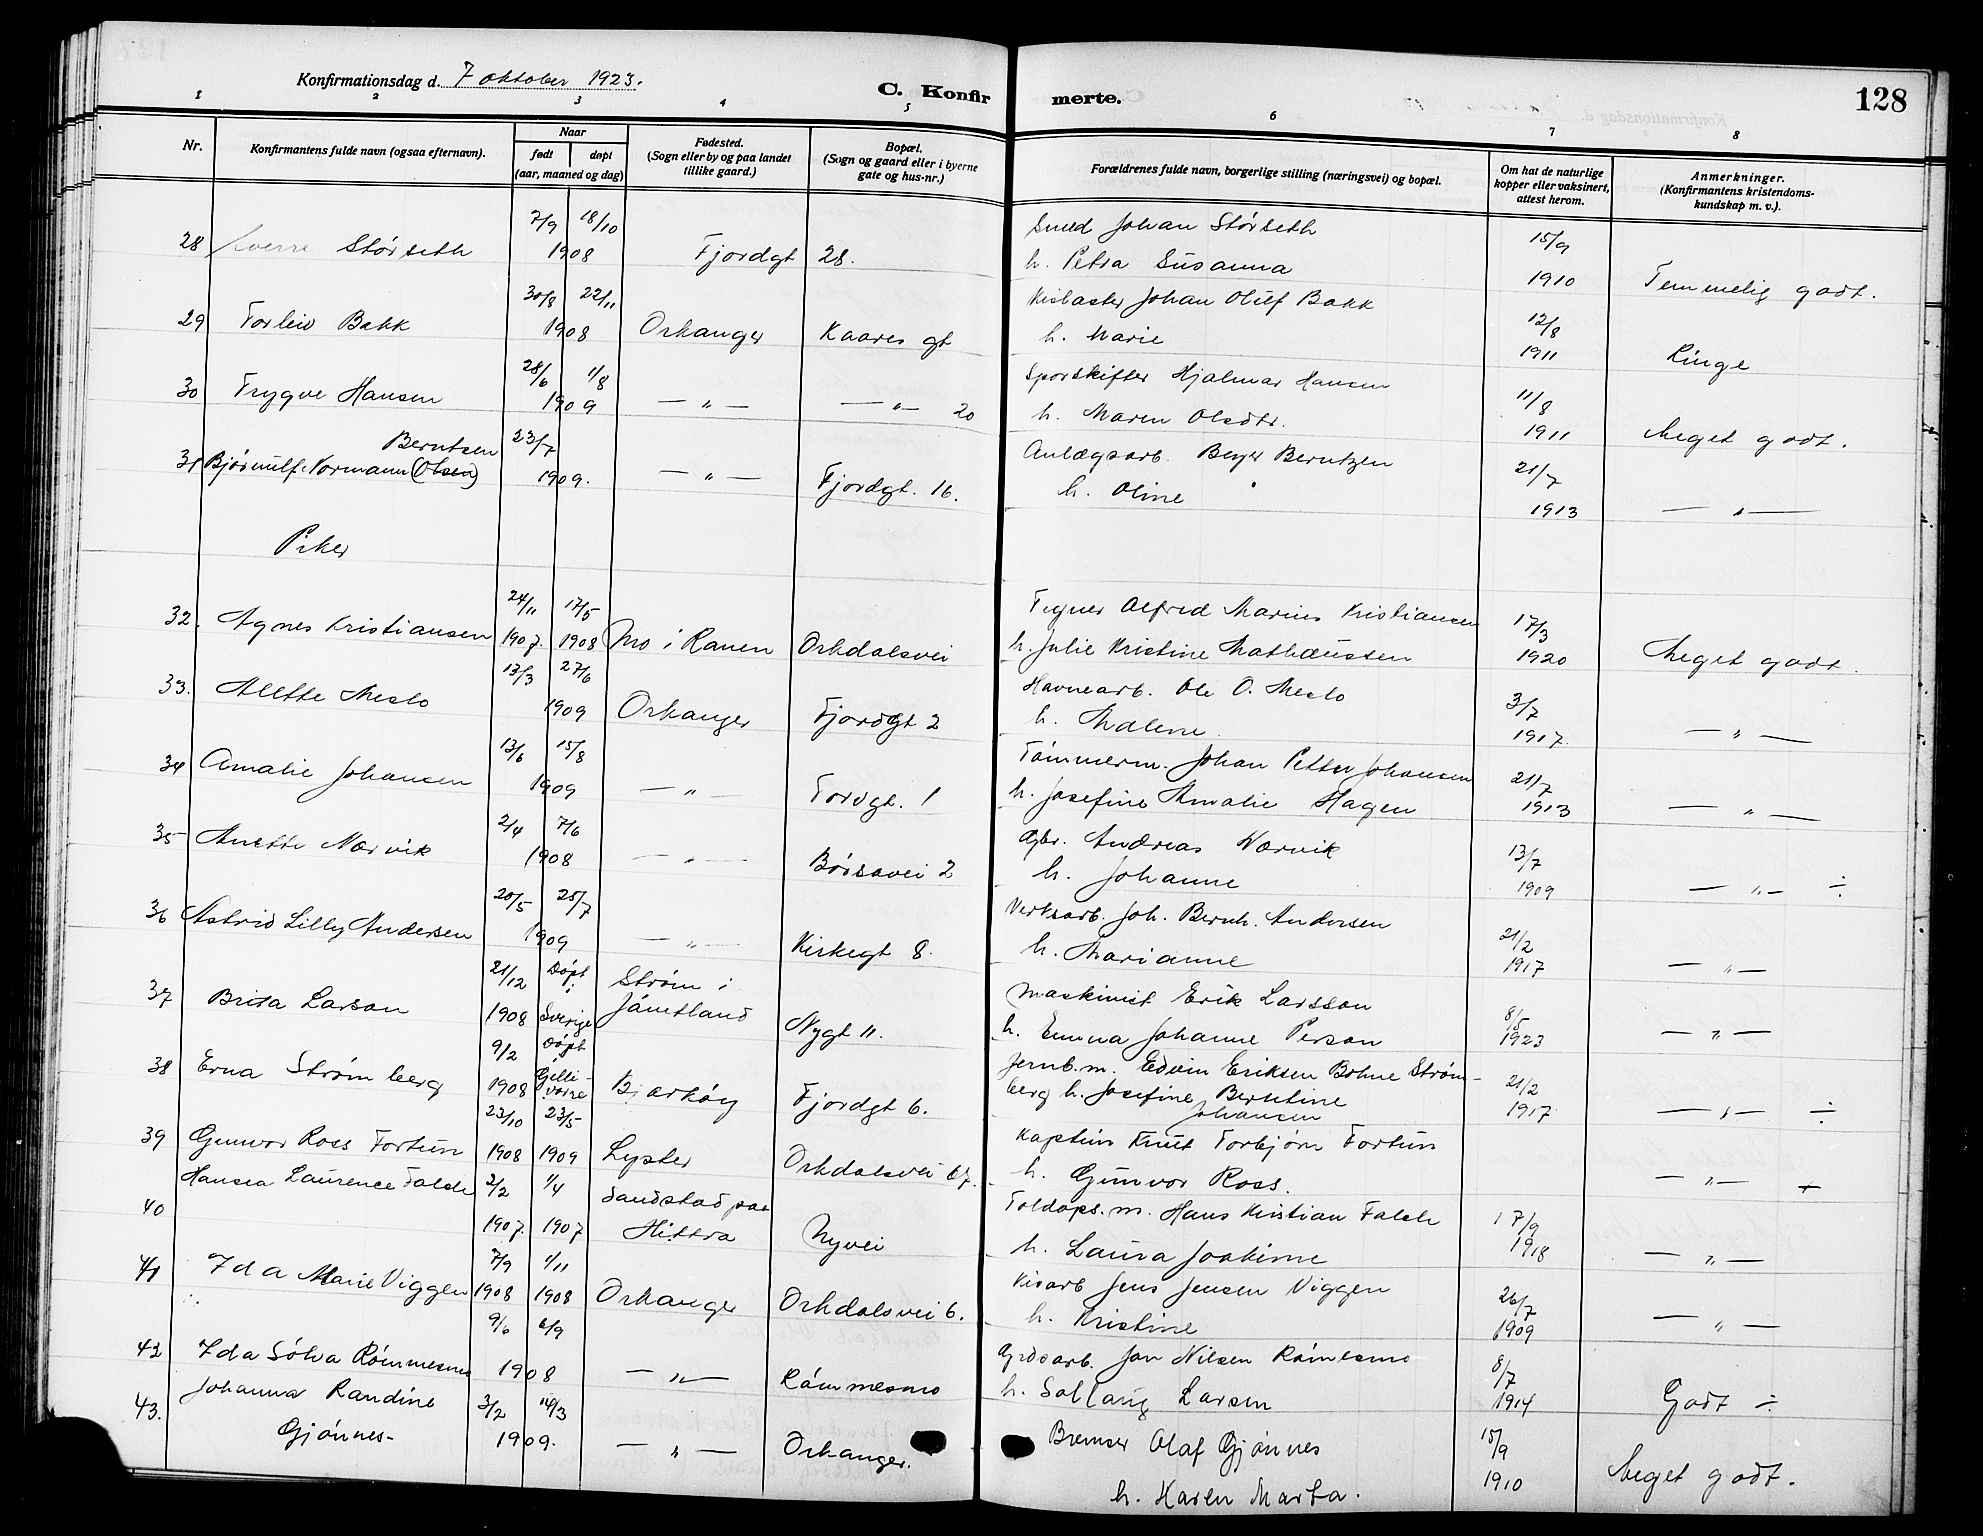 Konfirmationsdag d. 7 oktober 1923.
C. Konfir
merte.
128
1 2 3 4 5 6 7 8
Nr.
Konfirmantens fulde navn (ogsaa efternavn).
Naar
født døpt
(aar, maaned og dag)
Fødested.
(Sogn eller by og paa landet
tillike gaard.)
Bopæl.
(Sogn og gaard eller i byerne
gate og hus-nr.)
Forældrenes fulde navn, borgerlige stilling (næringsvei) og bopæl.
Om hat de naturlige
kopper eller vaksinert,
attest herom.
Anmerkninger.
(Konfirmantens kristendoms-
kundskap m. v.).
7/9 18/10 Smed Johan Størseth 15/9
28 Sverre Størseth 1908 Fjordgt 28. h. Petra Susanna 1910 Temmelig godt.
30/8 22/11 Kislaster Johan Oluf Bakk 12/8
29 Torleiv Bakk 1908 Orkanger Kaares gt h. Marie 1911 Ringe
28/6 1/8 Sporskifter Hjalmar Hansen 11/8
30 Trygve Hansen 1909 — „ — — „ — 20 h. Maren Olsdtr. 1911 Meget godt.
Berntsen 23/7 Anlægsarb. Berntzen 21/7
31 Bjørnulf Normann (Olsen) 1909. — „ — Fjordgt. 16. h. Oline 1913 — „ —
Piker
24/11 17/5 Tegner Alfred Marius Kristiansen 17/3
32. Agnes Kristiansen 1907. 1908 Mo i Ranen Orkdalsvei h. Julie Kristine Mathæussen 1920 Meget godt.
13/3 27/6 Havnearb. Ole O. Meslo 3/7
33. Alette Meslo 1909 Orkanger Fjordgt 2 h. Malene. 1917. — „ —
13/6 15/8 Tømmerm. Johan Petter Johansen 21/7
34 Amalie Johansen 1909 — „ — Tordgt. 1 h. Josefine Amalie Hagen 1913 — „ —
2/4 7/6 Gbr. Andreas Nærvik 13/7
35 Anette Nærvik 1908 — „ — Børsavei 2 h. Johanne 1909 — „ — ÷
20/5 25/7 Verksarb. Joh. Bernh. Andersen 21/2
36 Astrid Lilly Andersen 1909 — „ — Kirkegt 8. h. Marianne 1917 — „ —
21/12 Døpt i Strøm i Maskinist Erik Larsson 8/5
37 Brida Larson 1908 Sverige Jämtland Nygt 11. h. Emma Johanne Person 1923 — „ —
9/2 Døpt i Jernb.m. Edvin Eriksen Bohne Strøm- 21/2
38 Erna Strømberg 1908 Gelli- vare Bjarkøy Fjordgt 6. berg h. Josefine Berntine 1917. — „ — ÷
Johansen
23/10 23/5 Kaptein Knut Torbjørn Fortun
39 Gunvor Ross Fortun 1908 1909 Lyster Orkdalsvei 67. h. Gunvor Ross. — „ — +
Hansea Laurence Falch 2/2 1/4 Sandstad paa Toldops.m. Hans Kristian Falch 17/9
40 1907. 1907 Hittra Nyvei h. Laura Joakime 1918 — „ —
7/9 1/11 Kisarb Jens Jensen Viggen 26/7
41 Ida Marie Viggen 1908 1908 Orkanger Orkdalsvei 6. h. Kristine 1909 — „ —
9/6 6/9 Grdsarb. Jon Nilsen Rømesmo 8/7
42 Ida Solva Rømmesmo 1908 — „ — Rømmesmo h. Sollaug Larsen 1914 Godt ÷
Johanna Randine 3/2 14/3 Bremser Olaf Gjønnes 15/9
43. Gjønnes- 1909. — „ — Orkanger. h. Karen Marta. 1910 Meget godt.